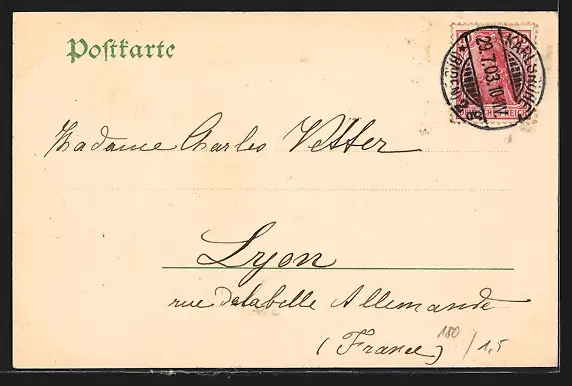 Postkarte
KARLSRUHE
29.7.03. 10-11V
(BADEN)
DEUTSCHES REICH
Madame Charles Vetter
Lyon
rue de la belle Allemande
(France)
180 / 1,5